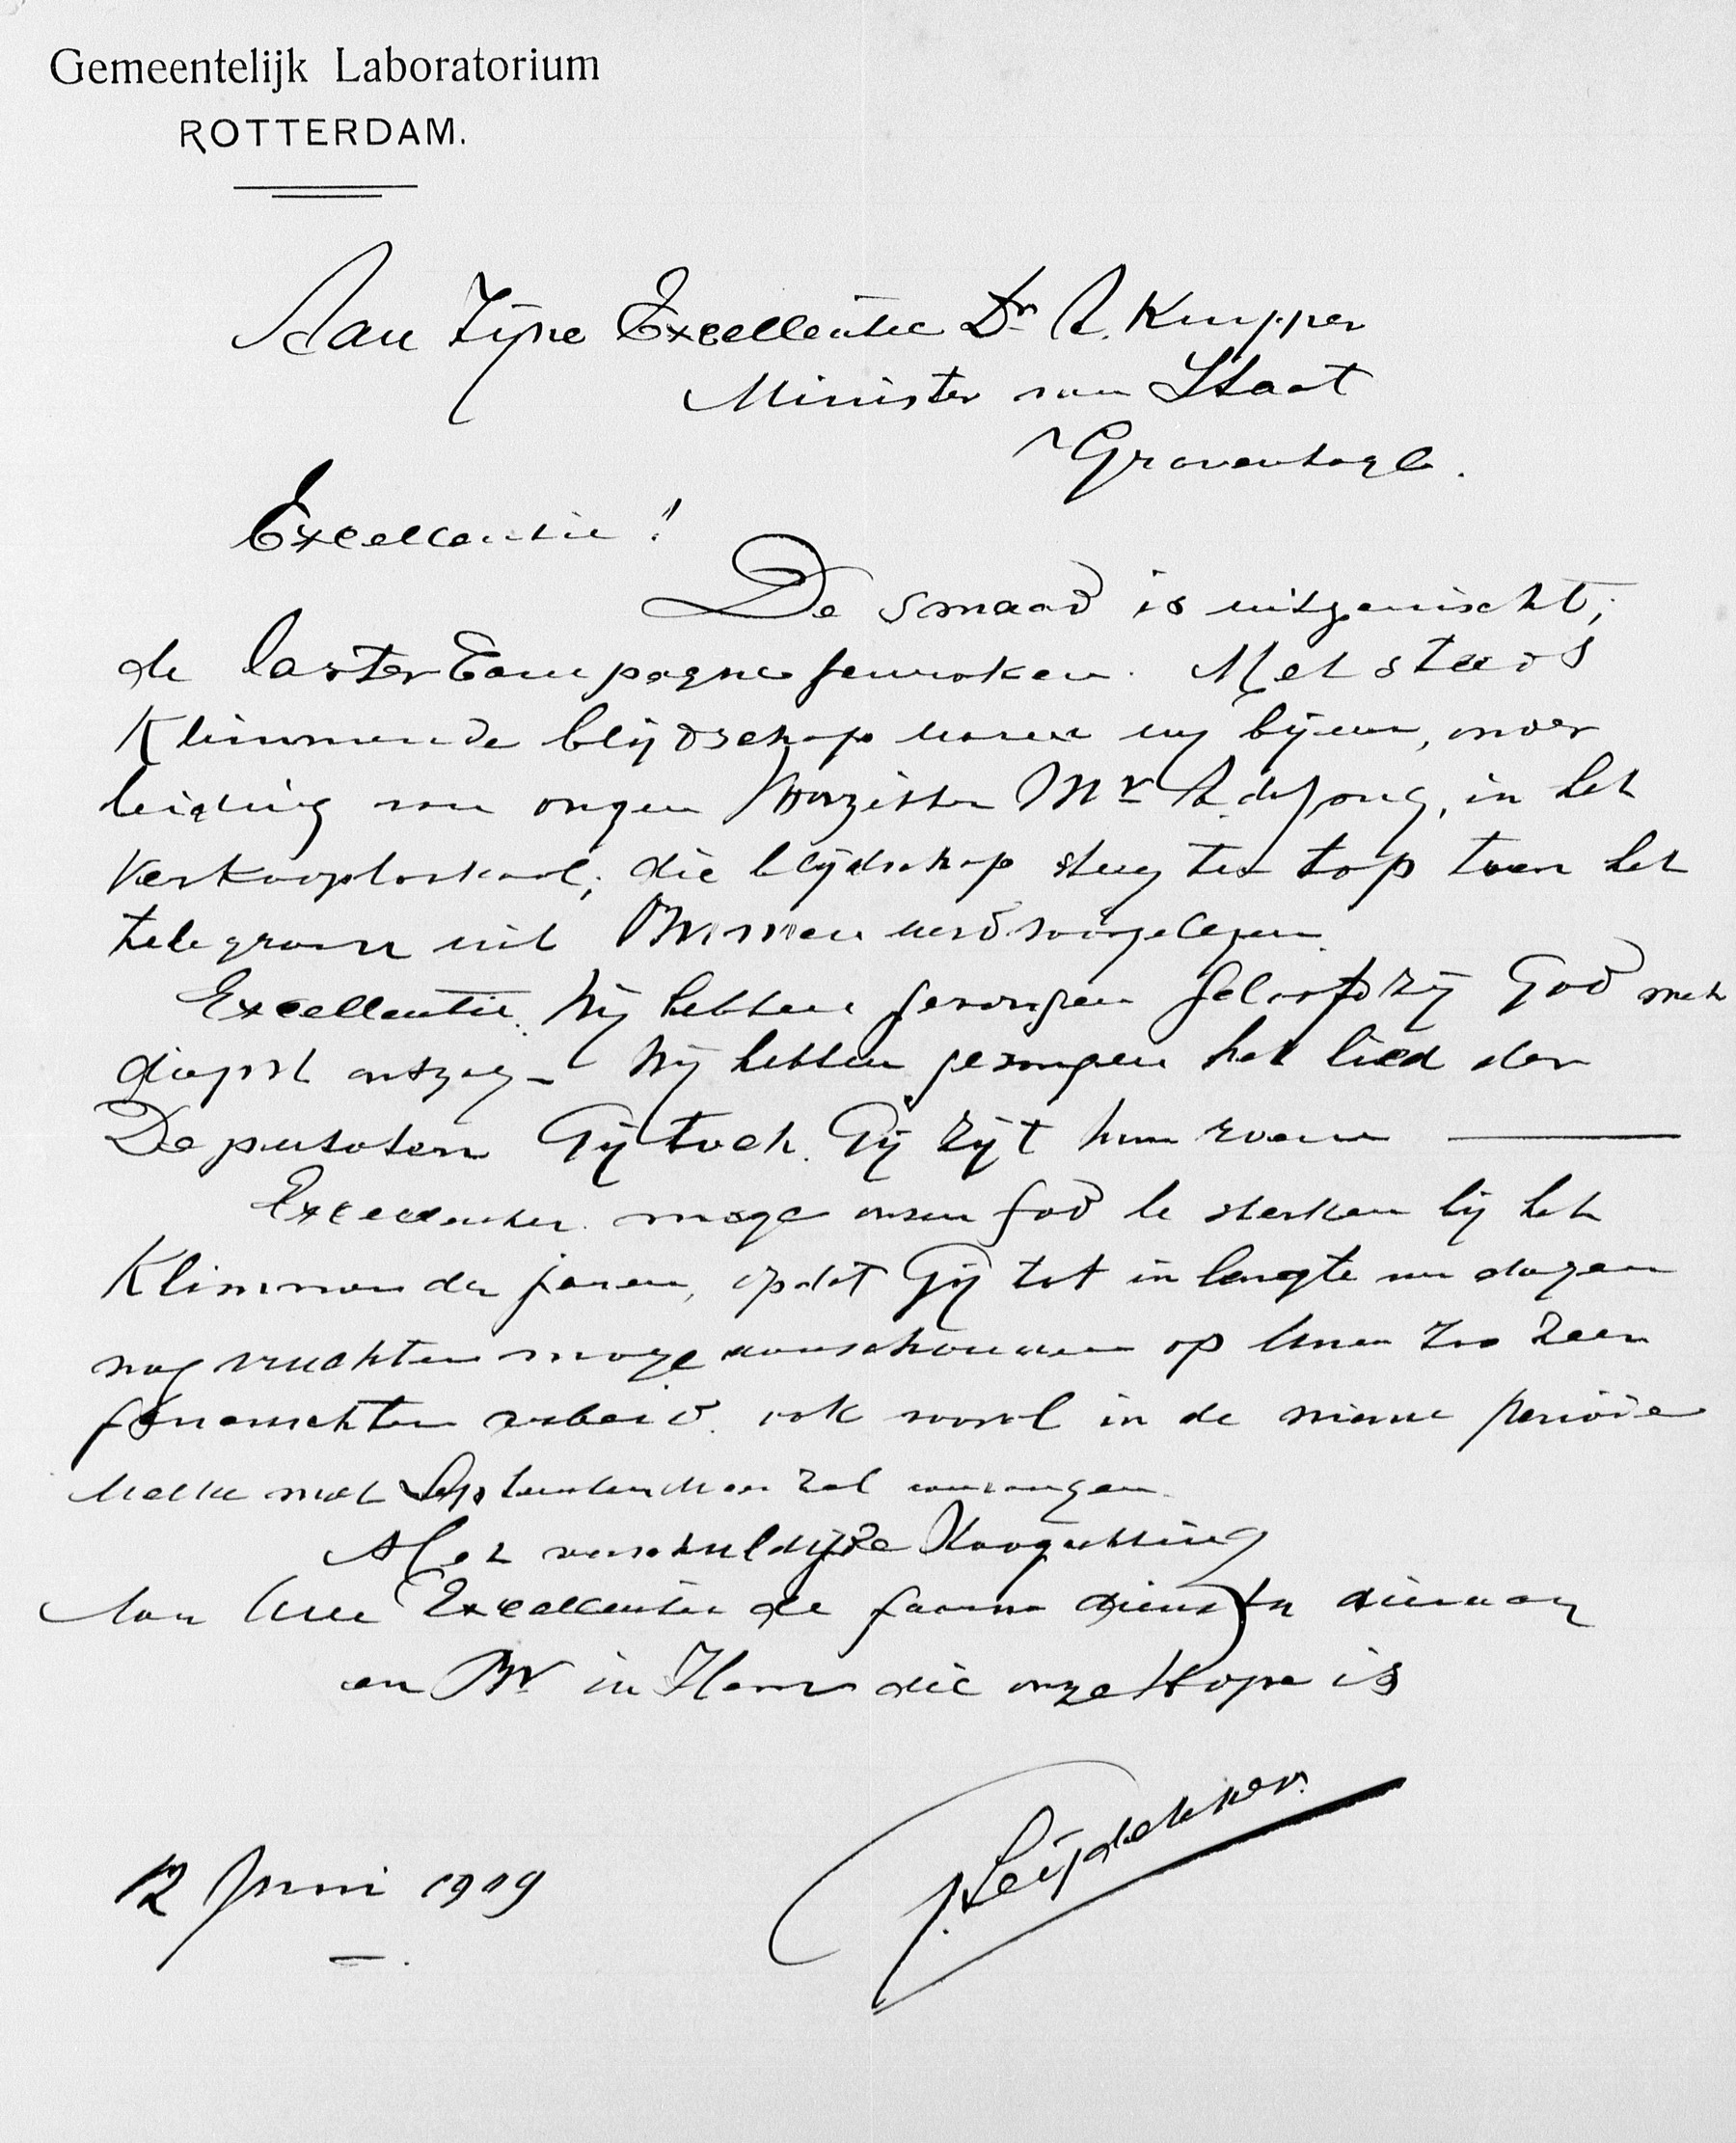 Gemeentelijk Laboratorium
ROTTERDAM.
Aan Zijne Excellentie Dr A. Kuyper
Minister van Staat
'sGravenhage.
Excellentie!
De smaad is uitgewischt,
de laster Campagne gewroken. Met steeds
Klimmende blijdschap waren wij bijeen, onder
leiding van onzen Voorzitter Mr A. de Jong, in het
Verkooplokaal; die blijdschap steeg ten top toen het
telegram uit Ommen werd voorgelezen.
Excellentie. Wij hebben gezongen geloofd zij God met
diepst ontzag – Wij hebben gezongen het lied der
Deputaten Gij toch. Gij zijt hun roem
Excellentie. moge onzen God U sterken bij het
Klimmen der jaren, opdat Gij tot in lengte van dagen
nog vruchten moge aanschouwen op Uwen zoo zeer
arbeid. ook vooral in de nieuwe periode
Welke met September zal aanvangen.
Met verschuldigde Hoogachting
Van Uwe Excellentie de gaarne dienstw dienaar
en Br in Hem die onze Hope is
J. Leijdekker.
12 Juni 1909